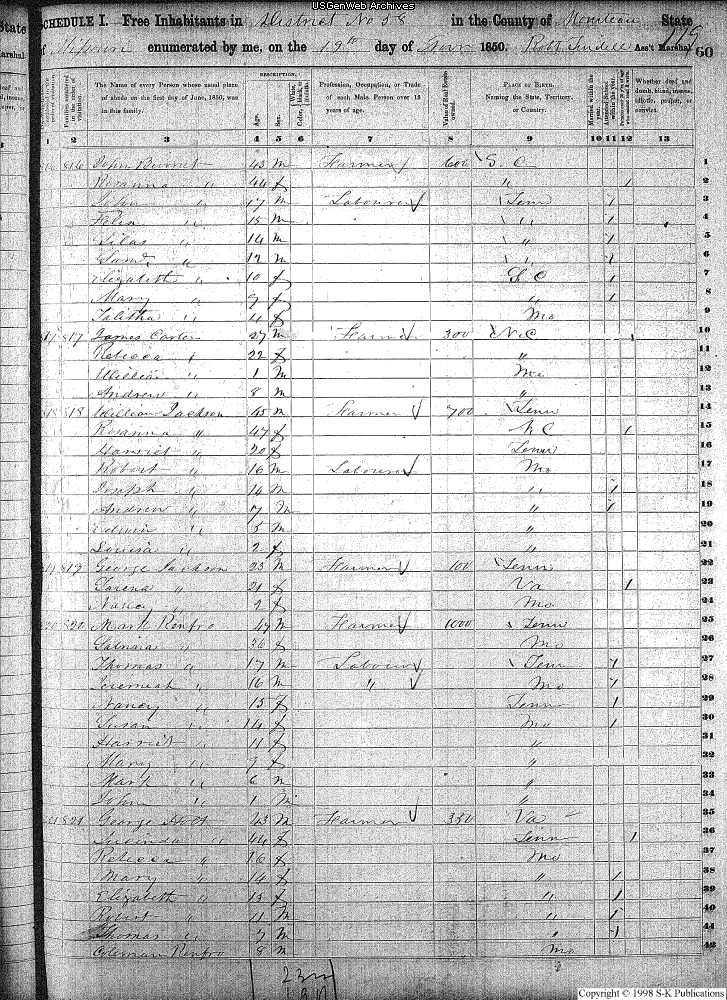 USGenWeb Archives
SCHEDULE I. Free Inhabitants in District No 58 in the County of Moniteau State
of Missouri enumerated by me, on the 19th day of 1850. Robt Ass't Marshal
119
60
State
Marshal
DESCRIPTION.
The Name of every Person whose usual place of abode on the first day of June, 1850, was in this family.
Age.
Sex.
Color,
Profession, Occupation, or Trade of each Male Person over 15 years of age.
Value of Real Estate owned.
PLACE OF BIRTH. Naming the State, Territory, or Country.
Married within the year.
Whether deaf and dumb, blind, insane, idiotic, pauper, or convict.
1 2 3 4 5 6 7 8 9 10 11 12 13
816 John 43 m Farmer 600 S. C 1
Rosanna " 44 f " / 2
John " 17 m Labourer Tenn / 3
15 m " / 4
Silas " 14 m " / 5
Saml " 12 m " / 6
Elizabeth " 10 f S C / 7
Mary " 7 f " / 8
Talitha " 4 f Mo 9
817 James Carter 27 m Farmer 300 N. C 10
Rebecca " 22 f " 11
William " 1 m Mo 12
Andrew " 8 m " 13
818 William Jackson 45 m Farmer 700 Tenn 14
Rosanna " 47 f N C / 15
Harriet " 20 f Tenn 16
Robert " 16 m Labourer Mo 17
Joseph " 14 m " / 18
Andrew " 7 m " / 19
Edwin " 5 m " 20
Louisa " 2 f " 21
819 George Jackson 23 m Farmer 100 Tenn 22
" 21 f Va / 23
Nancy " 2 f Mo 24
820 Mark Renfro 47 m Farmer 1000 Tenn 25
" 36 f Mo 26
Thomas " 17 m Labourer Tenn / 27
Jeremiah " 16 m " Mo / 28
Nancy " 15 f Tenn / 29
Susan " 14 f Mo / 30
Harriet " 11 f " 31
Mary " 7 f " 32
Mark " 6 m " 33
John " 1 m " 34
821 George Holt 43 m Farmer 350 Va 35
Lucinda " 44 f Tenn / 36
Rebecca " 16 f Mo 37
Mary " 14 f " / 38
Elizabeth " 13 f " / 39
Robert " 11 m " / 40
Thomas " 7 m " / 41
Coleman Renfro 8 m Mo 42
23m
Copyright © 1998 S-K Publications